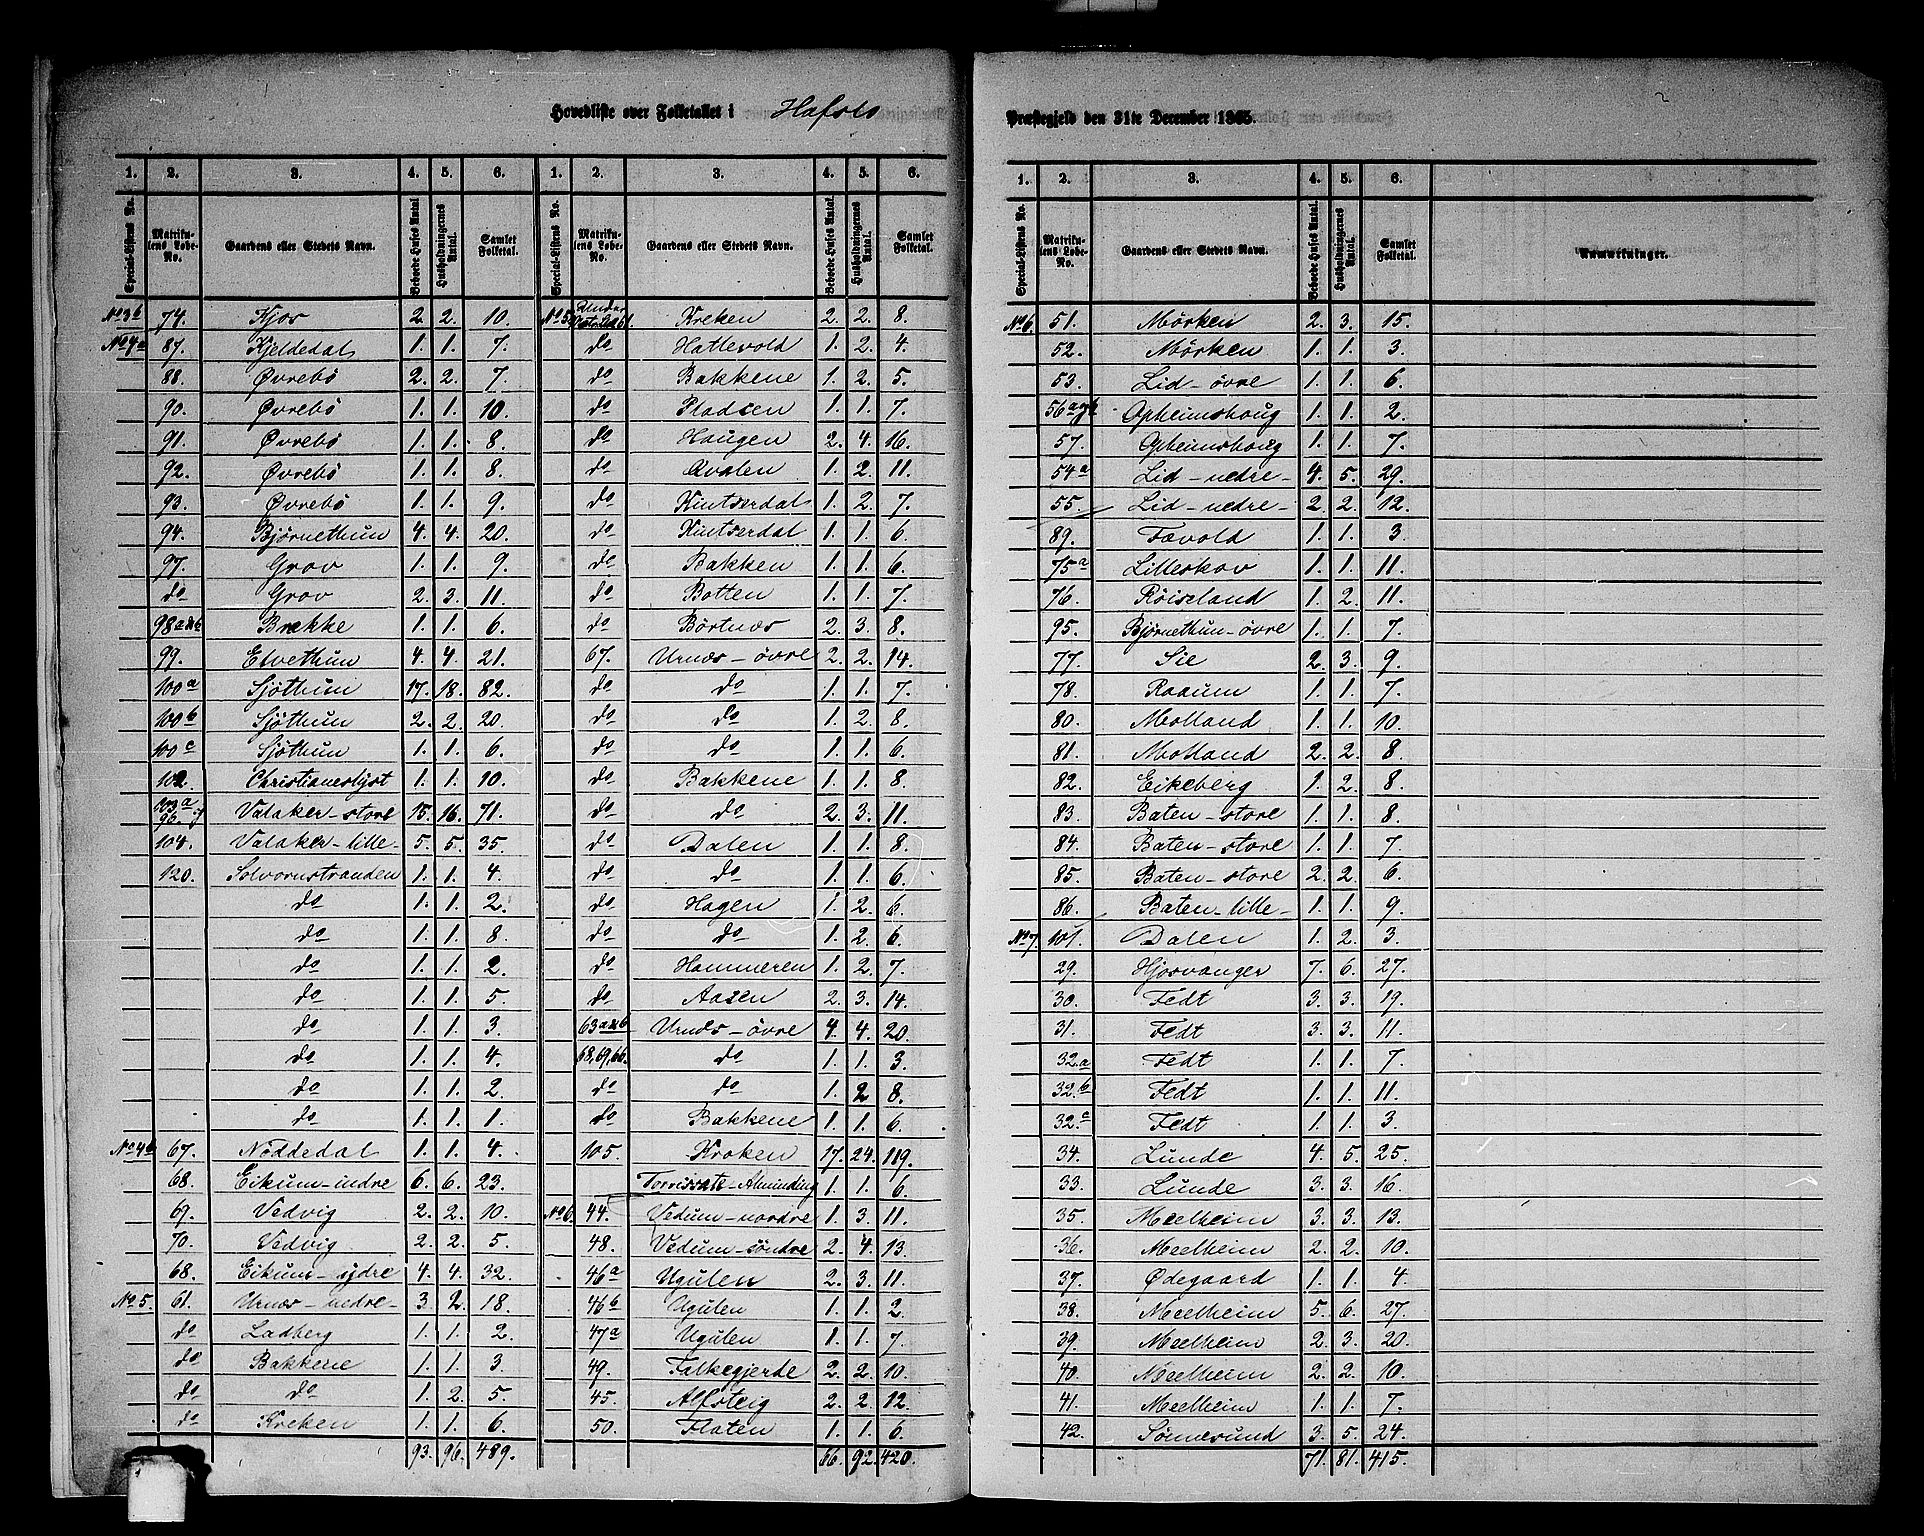 Hovedliste over Folketallet i Hafslo
Præstegjeld den 31te December 1865.
1. 2. 3. 4. 5. 6. 1. 2. 3. 4. 5. 6.
Special-Listens No. Matrikulens Løbe-No. Gaardens eller Stedets Navn. Beboede Huses Antal. Husholdningernes Antal. Samlet Folketal. Special-Listens No. Matrikulens Løbe-No. Gaardens eller Stedets Navn. Beboede Huses Antal. Husholdningernes Antal. Samlet Folketal.
No 3b 74. Kjos 2. 2. 10. No 5 Under 61. Kreken 2. 2. 8.
No 4a 87. Kjeldedal 1. 1. 7. do Hattevold 1. 2. 4.
88. Øvrebø 2. 2. 7. do Bakkene 1. 2. 5.
90. Øvrebø 1. 1. 10. do Pladsen 1. 1. 7.
91. Øvrebø 1. 1. 8. do Haugen 2. 4. 16.
92. Øvrebø 1. 1. 8. do Qvalen 1. 2. 11.
93. Øvrebø 1. 1. 9. do Kintserdal 1. 2. 7.
94. Bjørnethun 4. 4. 20. do Kintserdal 1. 1. 6.
97. Grov 1. 1. 9. do Bakken 1. 1. 6.
do Grov 2. 3. 11. do Botten 1. 1. 7.
98a&b Brække 1. 1. 6. do Børtnes 2. 3. 8.
99. Elvethun 4. 4. 21. 67. Urnæs-øvre 2. 2. 14.
100a Sjøthun 17. 18. 82. do do 1. 1. 7.
100b Sjøthun 2. 2. 20. do do 1. 2. 8.
100c Sjøthun 1. 1. 6. do do 1. 1. 6.
102. Christianeslyst 1. 1. 10. do Bakkene 1. 1. 8.
103a 96 Valaker-store 15. 16. 71. do do 2. 3. 11.
104. Valaker-lille- 5. 5. 35. do Dalen 1. 1. 8.
120. Solvornstranden 1. 1. 4. do do 1. 1. 6.
do 1. 1. 2. do Hagen 1. 2. 6.
do 1. 1. 8. do do 1. 2. 6.
do 1. 1. 2. do Hammeren 1. 2. 7.
do 1. 1. 5. do Aasen 2. 3. 14.
do 1. 1. 3. 63a&b Urnæs-øvre 4. 4. 20.
do 1. 1. 4. 68,69,66. do 1. 1. 3.
do 1. 1. 2. do do 1. 2 8.
do 1. 1. 1. do Bakkene 1. 1. 6.
No 4b 67. Noddedal 1. 1. 4. 105. Kroken 17. 24. 119.
68. Eikum-indre 6. 6. 23. Almınding 1. 1. 6.
69. Vedvig 2. 2. 10. No 6. 44. Vedum-nordre 1. 3. 11.
70. Vedvig 2. 2. 5. 48. Vedum-søndre 2. 4. 13.
68. Eikum-ydre 4. 4. 32. 46a Ugulen 2. 3. 11.
No 5. 61. Urnæs-nedre- 3. 2. 18. 46b Ugulen 1. 1. 2.
do Ladberg 1. 1. 2. 47a Ugulen 1. 1. 7.
do Bakkene 1. 1. 3. 49. Falkegjerde 2. 2. 10.
do do 1. 2. 5. 45. Alfsteig 2. 2. 12.
do Kreken 1. 1. 6. 50. Flaten 1. 1. 6.
93. 96. 489. 66. 92. 420.
1. 2. 3. 4. 5. 6.
Special-Listens No. Matrikulens Løbe-No. Gaardens eller Stedets Navn. Beboede Huses Antal. Husholdningernes Antal. Samlet Folketal. Anmærkninger.
No 6. 51. Mørken 2. 3. 15.
52. Mørken 1. 1. 3.
53. Lid-øvre 1. 1. 6.
56a&b Opheimshoug 1. 1. 2.
57. Opheimshoug 1. 1. 7.
54a Lid-nedre- 4. 5. 29.
55. Lid-nedre- 2. 2. 12.
89. Fævold 1. 1. 3.
75a Lilleskov 1. 1. 11.
76. Røiseland 1. 2. 11.
95. Bjørnethun-øvre 1. 1. 7.
77. Sie 2. 3. 9.
78. Raaum 1. 1. 7.
80. Molland 1. 1. 10.
81. Molland 2. 2. 8.
82. Eikeberg 1. 2. 8.
83. Baten-store 1. 1. 8.
84. Baten-store 1. 1. 7.
85. Baten-store 2. 2. 6.
86. Baten-lille- 1. 1. 9.
No 7. 101. Dalen 1. 2. 3.
29. Hjøsvanger 7. 6. 27.
30. Fedt 3. 3. 19.
31. Fedt 3. 3. 11.
32.a Fedt 1. 1. 7.
32.b Fedt 1. 1. 11.
32.c Fedt 1. 1. 3.
34. Lunde 4. 5. 25.
33. Lunde 3. 3. 16.
35. Meelheim 3. 3. 13.
36. Meelheim 2. 2. 10.
37. Ødegaard 1. 1. 4.
38. Meelheim 5. 6. 27.
39. Meelheim 2. 3. 20.
40. Meelheim 2. 2. 10.
41. Meelheim 1. 1. 7.
42. Sønnesund 3. 5. 24.
71. 81. 415.